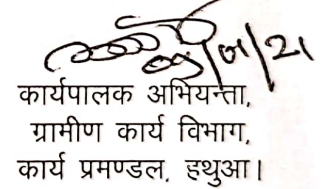 01/21
कार्यपालक अभियन्ता,
ग्रामीण कार्य विभाग,
कार्य प्रमण्डल, हथुआ।